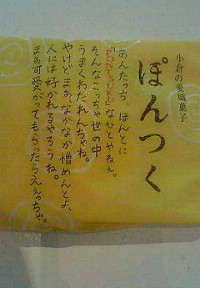 小倉の愛嬌菓子
ぽんつく
あんたっち、ほんとに
"PONTSUKU"なひとやねぇ。
そんなこっちゃ世の中
うまくわたれんちゃね。
やけどまぁ、なかなか憎めんとよ、
人には好かれるやろうね。
まぁ可愛がってもらったらええっちゃ。